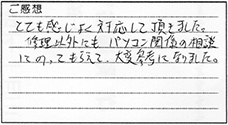 ご感想
とても感じよく対応して頂てました。
修理以外にもパソコン関係の相談
にのってもらえて、大変参考になりました。